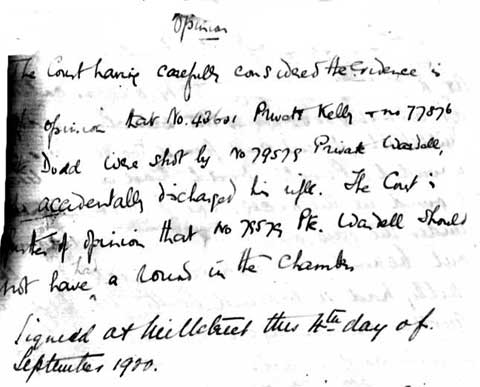 Opinion
The Court having carefully considered the Evidence is
opinion that No. 43601 Private Kelly + no 77876
Dodd were shot by no 79579 Private Wardell,
accidentally discharged his rifle. The Court is
of opinion that no 79579 Pte. Wardell should
not have had a round in the Chamber
Signed at Millstreet this 4th day of.
September 1920.